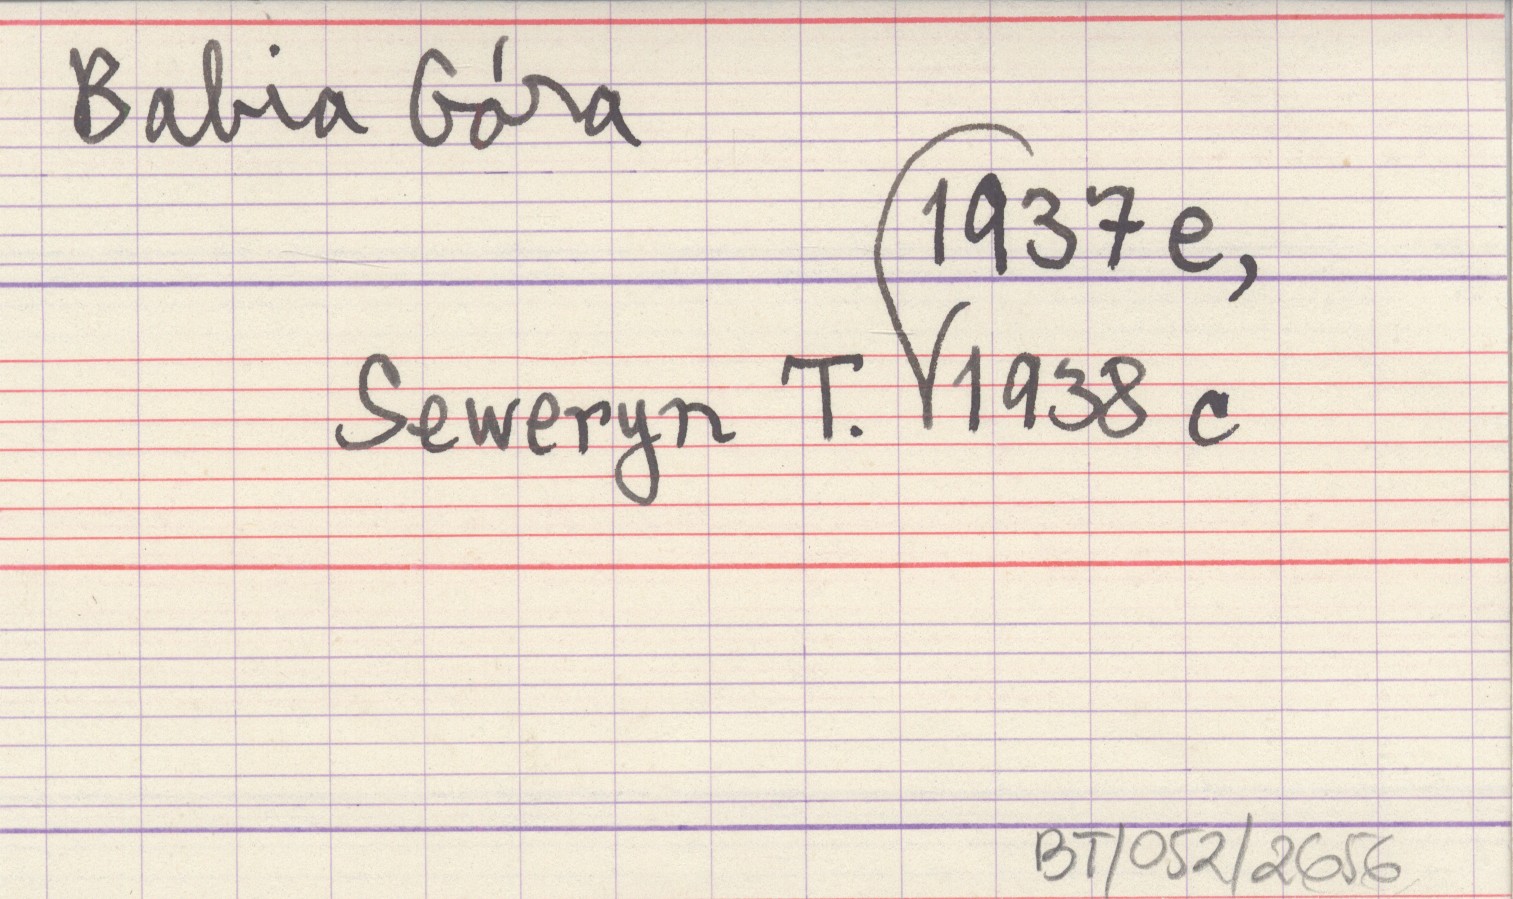 Babia Góra
1937e,
Seweryn T. 1938c
BT/052/2656